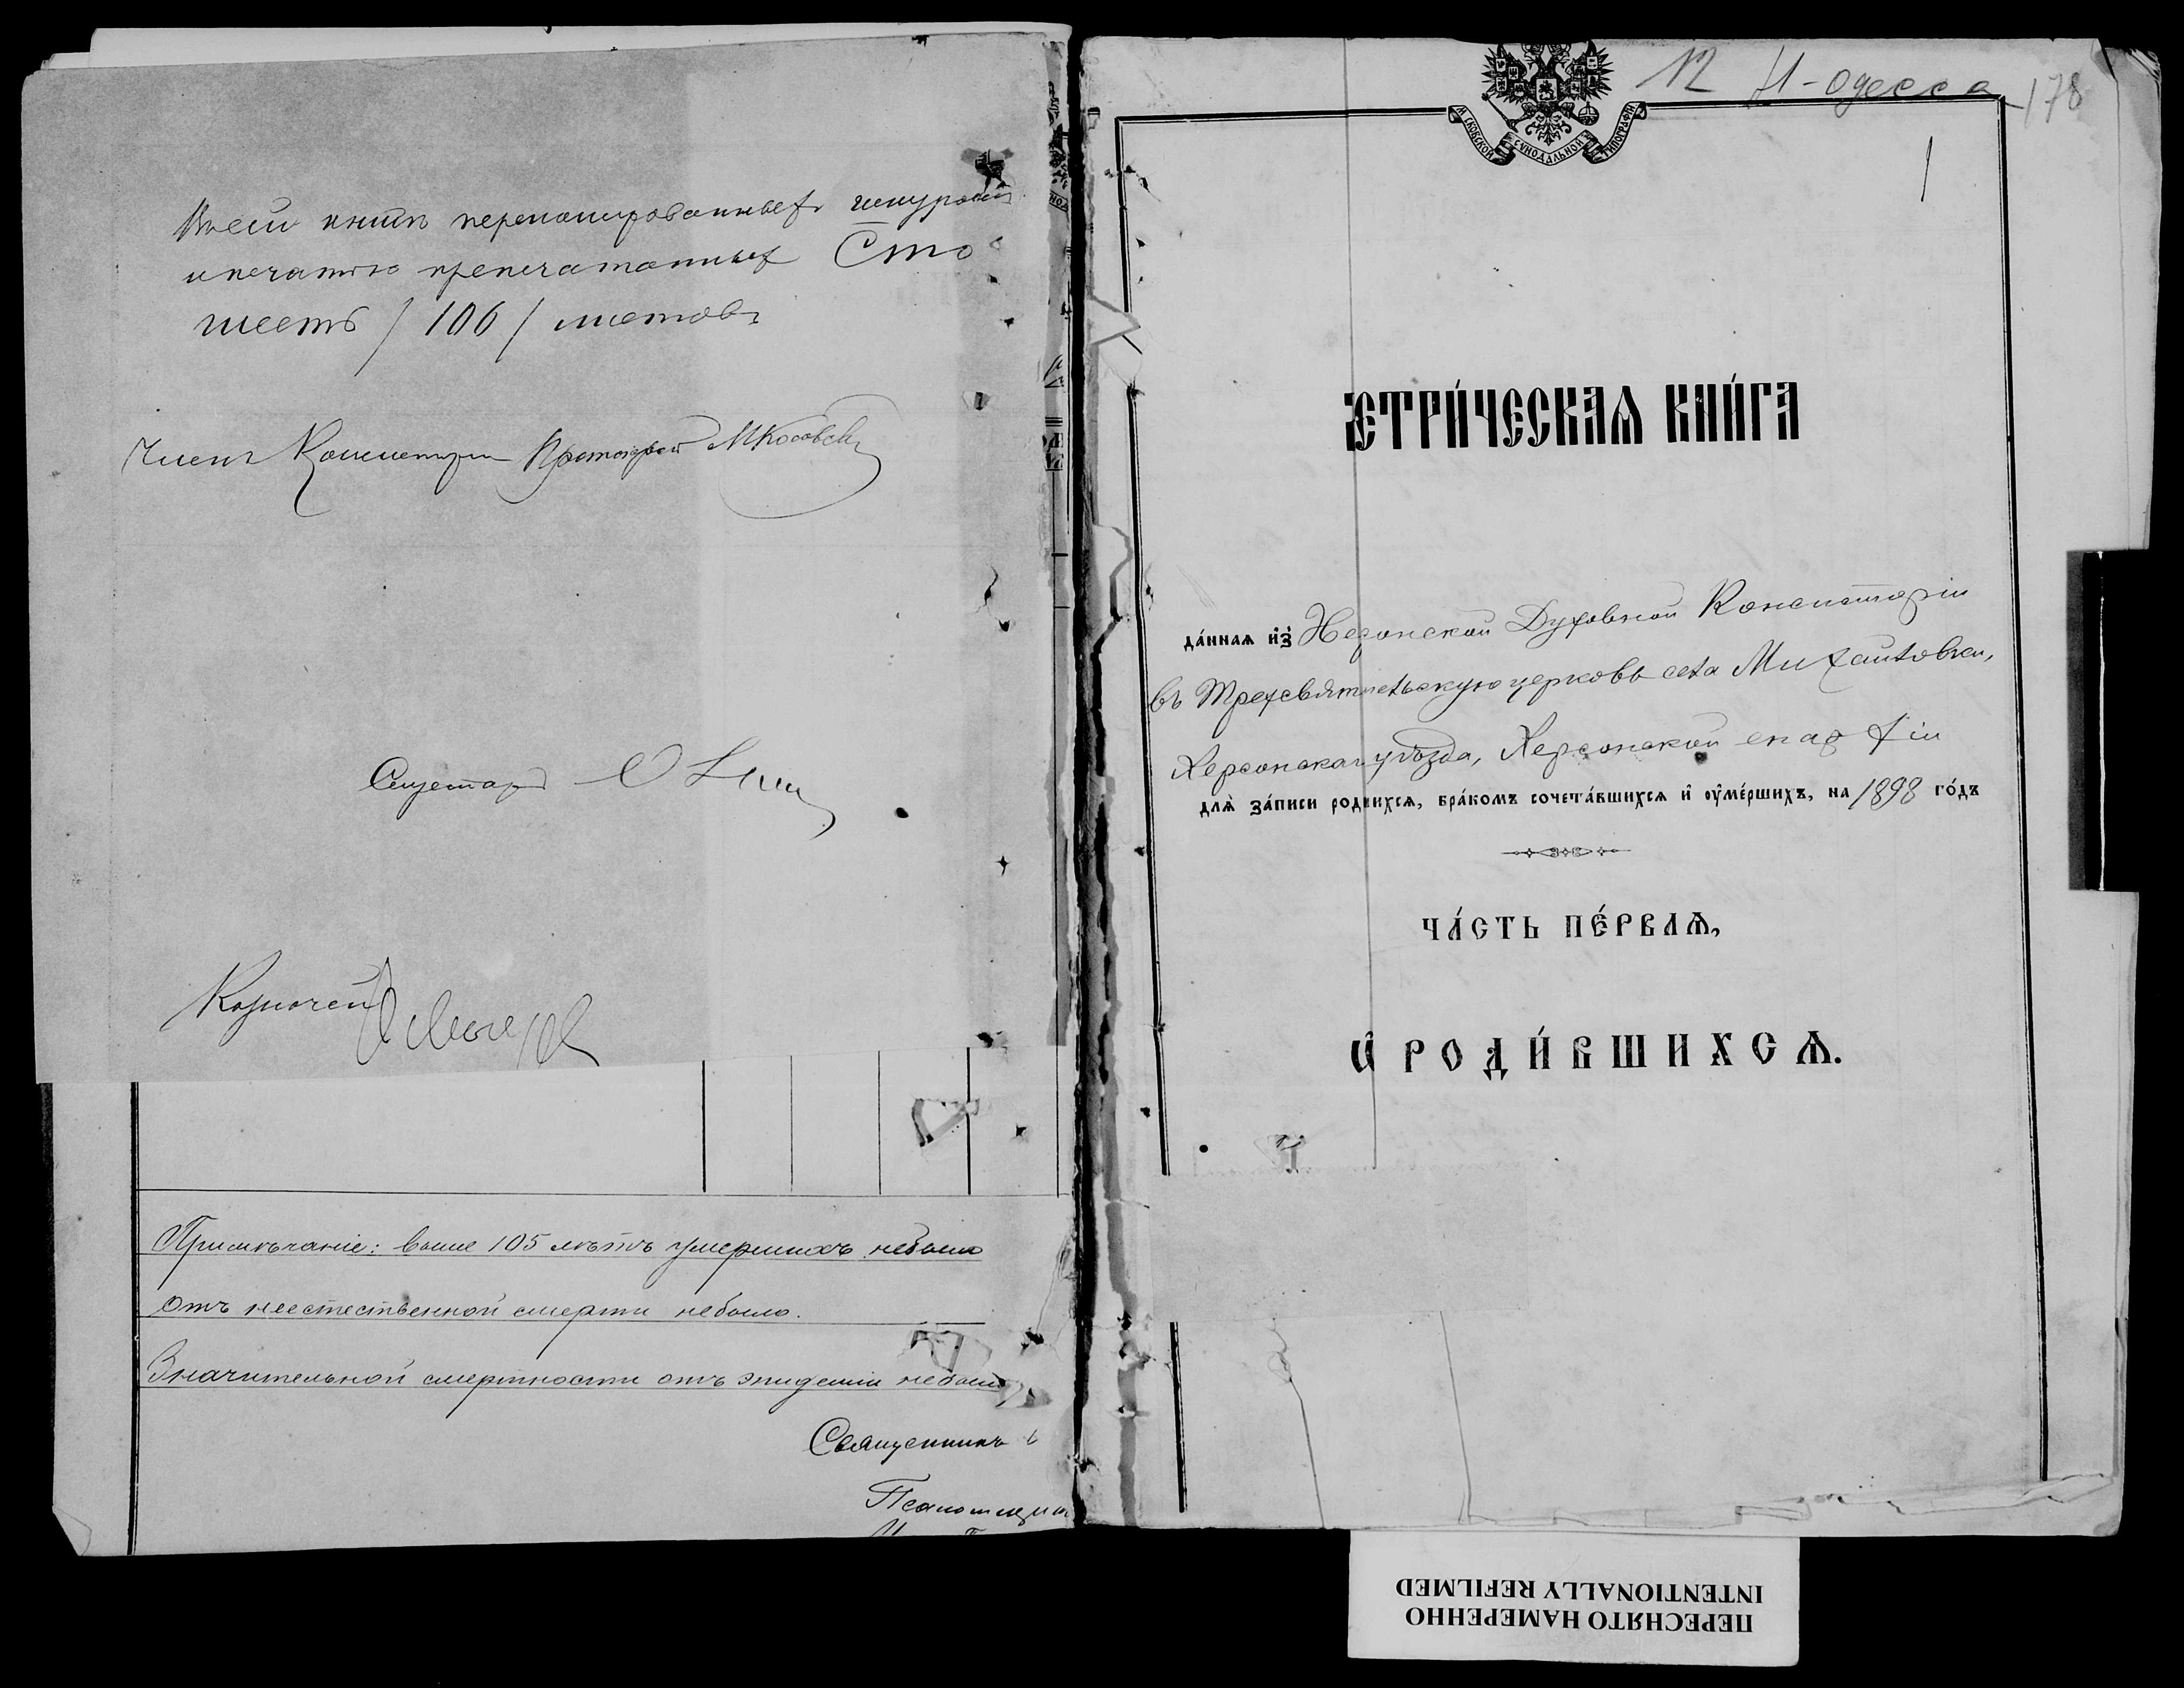 Въ сей книгѣ перенумерованныхъ шнуромъ
и печатью препечатанныхъ Сто
шесть / 106 / листовъ
Членъ Консисторіи Протоіерей
Секретарь
Казначей
Примѣчаніе: выше 105 лѣтъ умершихъ небыло
Отъ неестественной смерти небыло.
Значительной смертности отъ эпидеміи небыло
Священникъ
12 Н-Одесса 178
МОСКОВСКОЙ СѴНОДАЛЬНОЙ ТИПОГРАФІИ
1
ЕТРИ́ЧЕСКАѦ КНИ́ГА
да́ннаѧ и҆зъ Херсонской Духовной Консисторіи
въ Трехсвятительскую церковь села Михайловки,
Херсонскаго уѣзда, Херсонской епархіи
длѧ̀ за́писи роди́вшихсѧ, бра́комъ сочета́вшихсѧ и҆ ᲂу҆ме́ршихъ, на 1898 го́дъ
ЧА́СТЬ ПЕ́РВАѦ,
Ѽ РОДИ́ВШИХСѦ.
ПЕРЕСНЯТО НАМЕРЕННО
INTENTIONALLY REFILMED